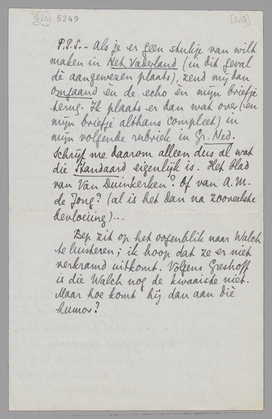 5249
P.P.S. - Als je er geen stukje van wilt
maken in Het Vaderland (in dit geval
dé aangewezen plaats), zend mij dan
omgaand èn de echo èn mijn briefje
terug. Ik plaats er dan wat over (en
mijn briefje althans compleet) in
mijn volgende rubriek in Gr. Ned.
Schrijf me daarom alleen dus al wat
die Standaard eigenlijk is. Het blad
van Van Duinkerken? Of van A.M.
de Jong? (al is het dan na zooveelste
)...
Bep zit op het oogenblik naar Walch
te luisteren; ik hoop dat ze er niet
verkramd uitkomt. Volgens Greshoff
is die Walch nog de kwaaiste niet.
Maar hoe komt hij dan aan dié
humor?